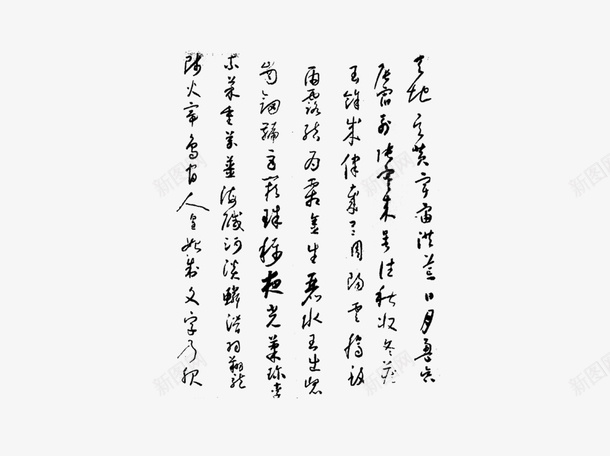 天地玄黃宇宙洪荒日月盈昃
辰宿列張寒來暑往秋收冬藏
閏餘成歲律呂調陽雲騰致
雨露結為霜金生麗水玉出崑
崗劍號巨闕珠稱夜光菓珍李
柰菜重芥薑海鹹河淡鱗潛羽翔龍
師火帝鳥官人皇始制文字乃服